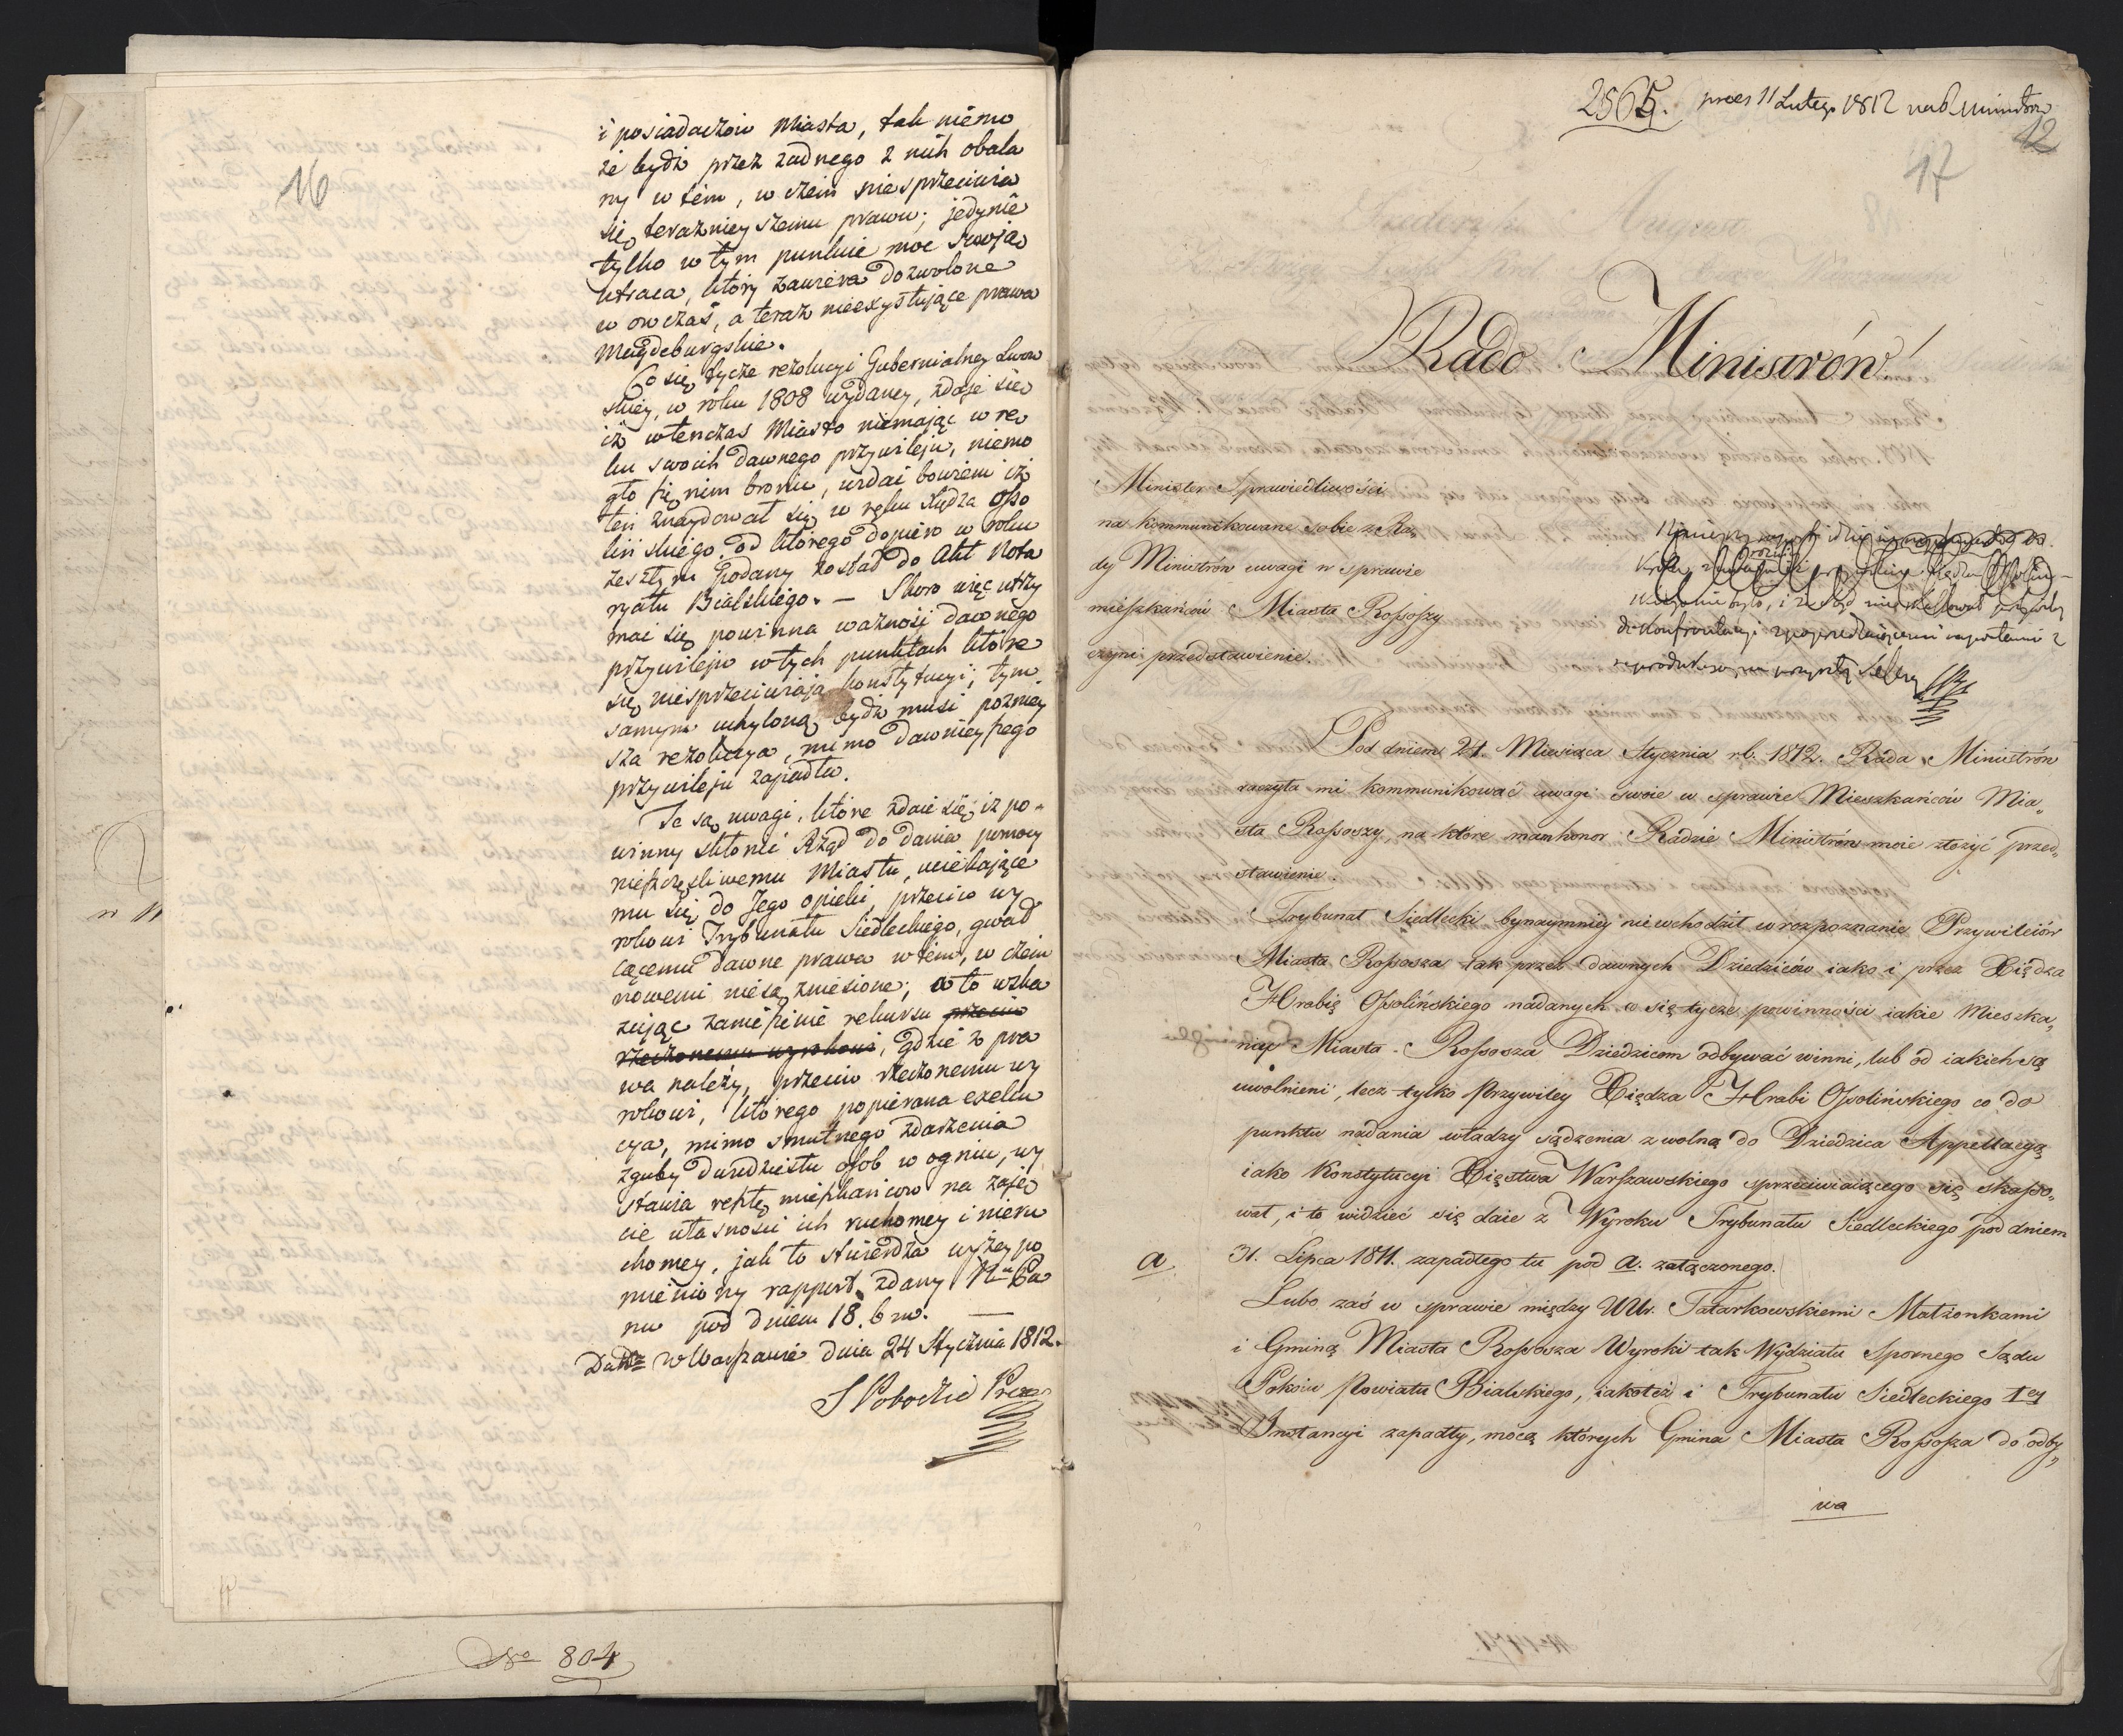 16
i posiadaczów Miasta, tak niemo
że bydź przez żadnego z nich obala
ny w tém, w czém nie sprzeciwia
się teraznieyszemu prawu; jedynie
tylko w tym punkcie moc swoją
utraca, który zawiera dozwolone
w ow czas, a teraz nieexystujące prawa
Magdeburgskie.
Co się tycze rezolucyi Gubernialney Lwow
skiey, w roku 1808 wydaney, zdaje się
iż wtenczas Miasto niemając w rę
ku swoich dawnego przywileju, niemo
gło się nim bronić, widać bowiem iż
ten znaydował się w ręku Xiędza Osso
lińskiego, od którego dopiero w roku
zeszłym podany został do Akt Nota
ryatu Bialskiego. — Skoro więc utrzy
mać się powinna ważność dawnego
przywileju w tych punktach które
się niesprzeciwiają konstytucyi; tym
samym uchyloną bydź musi pozniey
sza rezolucya, mimo dawnieyszego
przywileju zapadła.
Te są uwagi, które zdaie się, iż po-
winny skłonić Rząd do dania pomocy
nieszczęśliwemu Miastu, uciekające
mu się do Jego opieki, przeciw wy
rokowi Trybunału Siedleckiego, gwał
cącemu dawne prawa w tém, w czém
nowemi nie są zniesione; a to wska
zując zaniesienie rekursu przeciw
rzeczonemu wyrokowi, gdzie z pra
wa należy, przeciw rzeczonemu wy
rokowi, którego popierana exeku
cya, mimo smutnego zdarzenia
zguby dwudziestu osob w ogniu, wy
stawia resztę mieszkańców na zaję
cie własności ich ruchomey i nieru
chomey, jak to stwierdza wyżey po
mieniony rapport zdany
nu pod dniem 18. b m. —
Datt w Warszawie dnia 24 Stycznia 1812.
No 804
2565. prees 11 Lutego 1812 na
12
17
Rado Ministrów!
Minister Sprawiedliwości
na kommunikowane sobie z Ra
dy Ministrów uwagi w sprawie
mieszkańców Miasta Rossoszy
czyni przedstawienie.
Pod dniem 24. Miesiąca Stycznia r.b. 1812. Rada Ministrów
raczyła mi kommunikować uwagi swoie w sprawie Mieszkańców Mia„
sta Rossoszy, na które mam honor Radzie Ministrów moie złożyć przed„
stawienie.
Trybunał Siedlecki bynaymniey nie wchodził w rozpoznanie Przywileiów
Miasta Rossosza tak przez dawnych Dziedziców iako i przez Xiędza
Hrabię Ossolińskiego nadanych co się tycze powinności iakie Mieszka„
nicy Miasta Rossosza Dziedzicom odbywać winni, lub od iakich są
uwolnieni, lecz tylko Przywiley Xiędza Hrabi Ossolińskiego co do
punktu nadania władzy sądzenia z wolną do Dziedzica Appellacyą
iako Konstytucyi Xięstwa Warszawskiego sprzeciwiaiącego się skasso„
wał, i to widzieć się daie z Wyroku Trybunału Siedleckiego pod dniem
a. 31. Lipca 1811. zapadłego tu pod a. załączonego.
Lubo zaś w sprawie między WW. Tatarkowskiemi Małżonkami
i Gminą Miasta Rossosza Wyroki tak Wydziału Spornego Sądu
Pokoiu Powiatu Bialskiego, iakoteż i Trybunału Siedleckiego Iey
Instancyi zapadły, mocą których Gmina Miasta Rossosza do odby„
wa